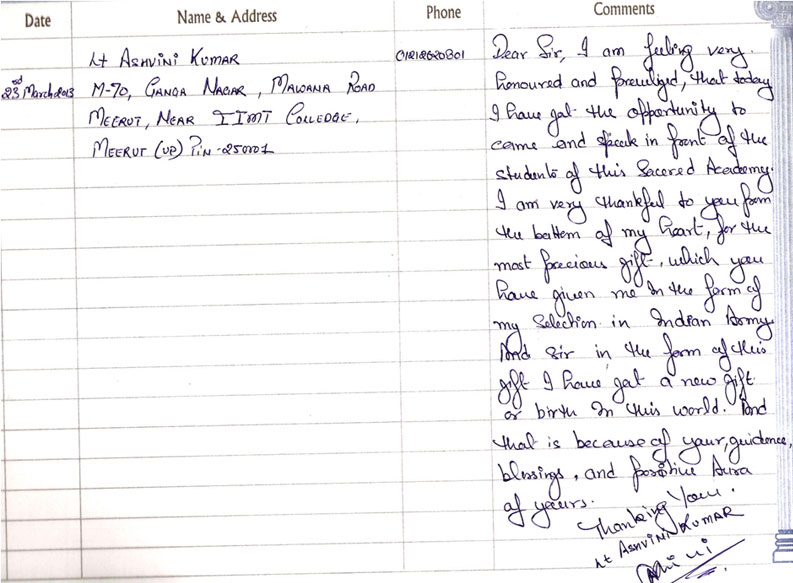 Date Name & Address Phone Comments
Lt ASHVINI KUMAR 01212620301
23rd March 2013 M-70, GANGA NAGAR, MAWANA ROAD
MEERUT, NEAR IIMT COLLEDGE,
MEERUT (UP) PIN-250001
Dear Sir, I am feeling very
honoured and previliged, that today
I have got the opportunity to
come and speak in front of the
students of this Sacered Academy.
I am very thankful to you from
the bottom of my heart, for the
most precious gift, which you
have given me in the form of
my Selection in Indian Army
And Sir in the form of this
gift I have got a new gift
or birth in this world. And
that is because of your, guidence,
blessings, and positive Aura
of yours.
Thanking You.
Lt ASHVINI KUMAR